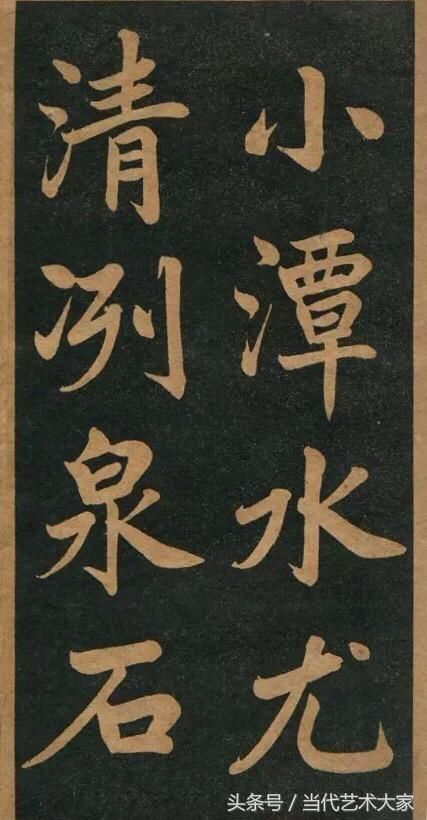 小潭水尤
清冽泉石
头条号／当代艺术大家